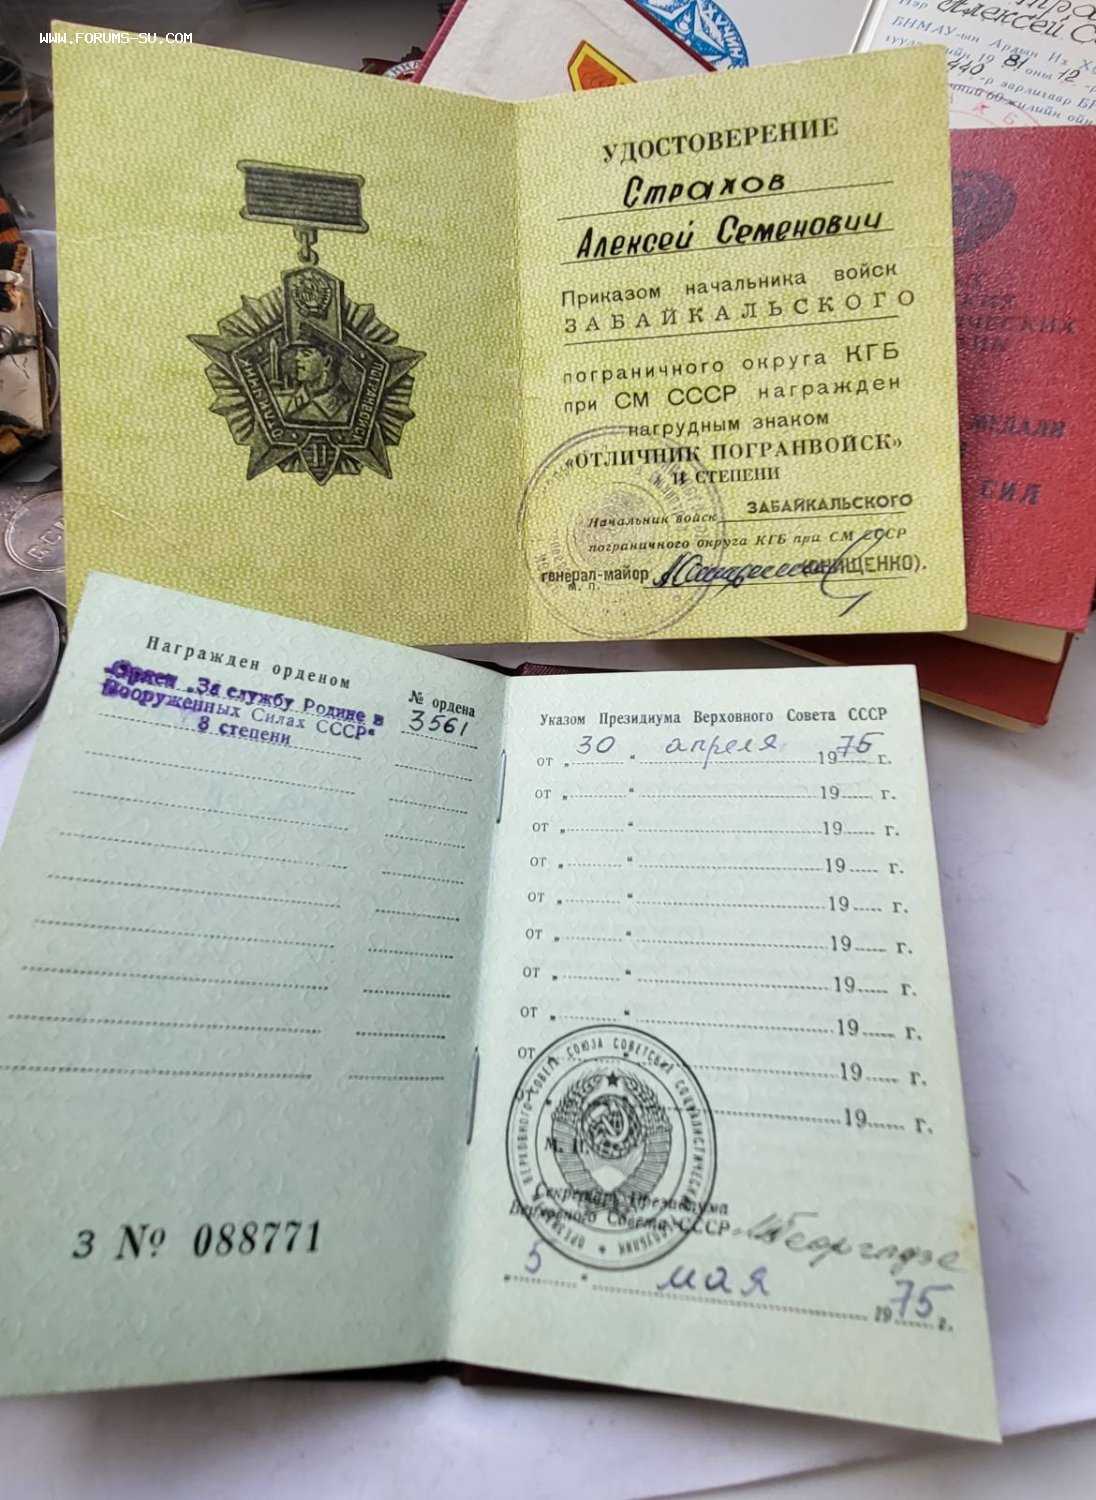 WWW.FORUMS-SU.COM
Алексей С
БНМАУ-ын Ардын Их Ху
19 81 оны 12
440 -р зарлигаар БН
60 жилийн ойн
УДОСТОВЕРЕНИЕ
Страхов
Алексей Семенович
Приказом начальника войск
ЗАБАЙКАЛЬСКОГО
пограничного округа КГБ
при СМ СССР награжден
нагрудным знаком
«ОТЛИЧНИК ПОГРАНВОЙСК»
II СТЕПЕНИ
Начальник войск ЗАБАЙКАЛЬСКОГО
пограничного округа КГБ при СМ СССР
генерал-майор
М. П.
ОТЛИЧНИК ПОГРАНВОЙСК
II
МЕДАЛИ
СИЛ
Награжден орденом
№ ордена
Орден „За службу Родине в
Вооруженных Силах СССР“
3 степени
3561
З № 088771
Указом Президиума Верховного Совета СССР
от „ 30 “ апреля 1975 г.
от „ “ 19 г.
от „ “ 19 г.
от „ “ 19 г.
от „ “ 19 г.
от „ “ 19 г.
от „ “ 19 г.
от „ “ 19 г.
от „ “ 19 г.
от „ “ 19 г.
М. П.
Секретарь Президиума
Верховного Совета СССР
„ 5 “ мая 1975 г.
ПРЕЗИДИУМ ВЕРХОВНОГО СОВЕТА СОЮЗА СОВЕТСКИХ СОЦИАЛИСТИЧЕСКИХ РЕСПУБЛИК